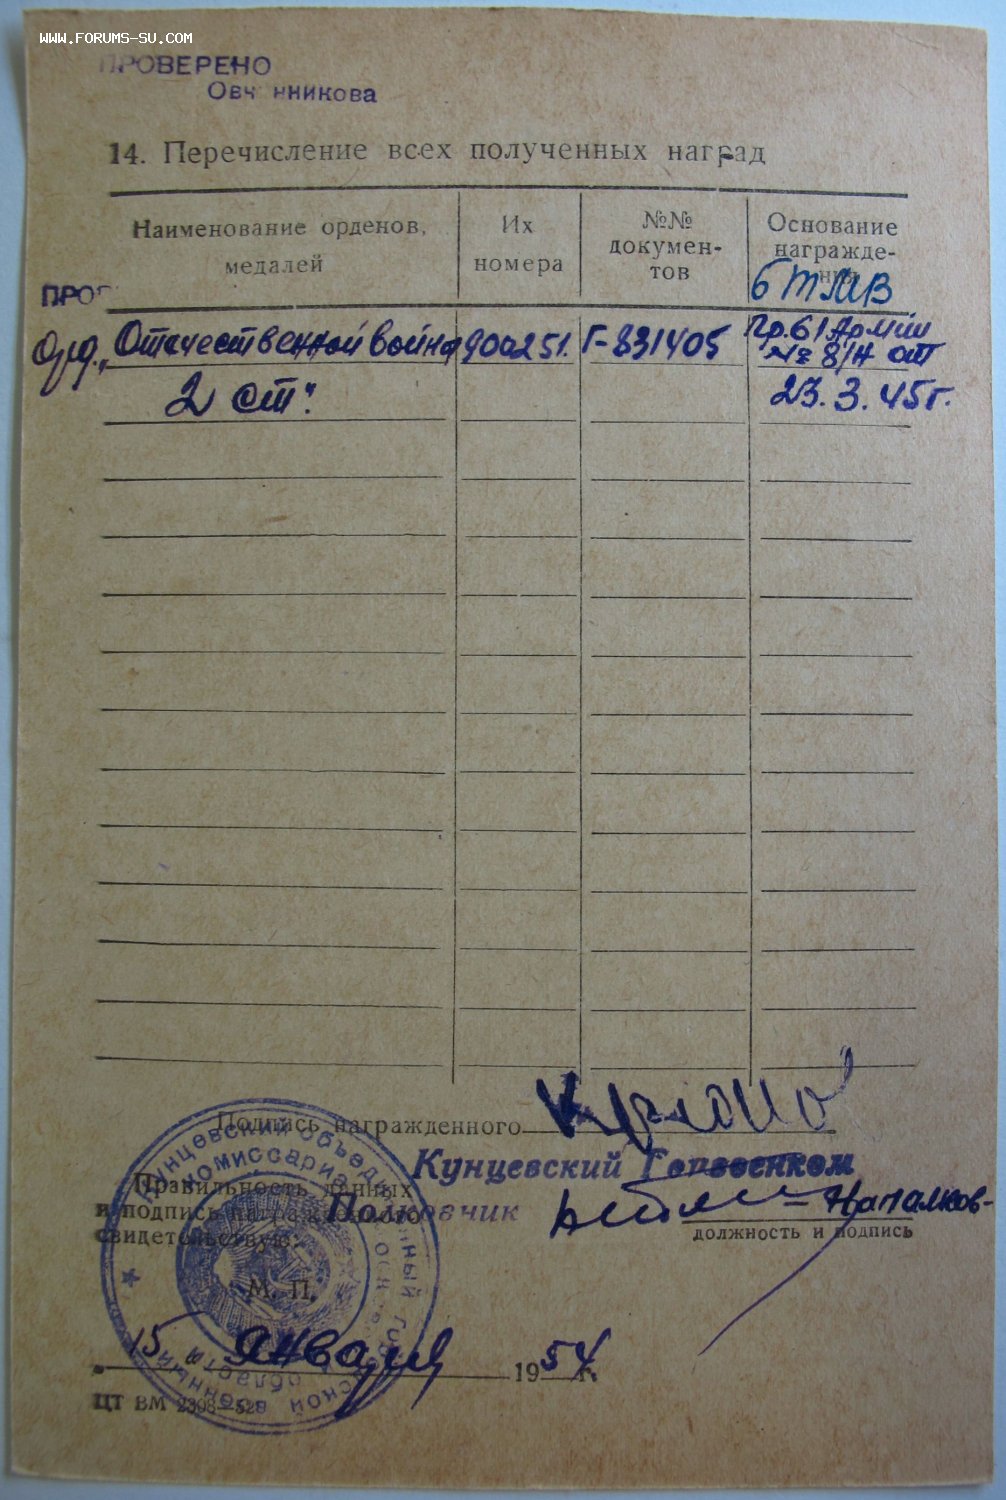 www.FORUMS-SU.COM
ПРОВЕРЕНО
Овч нникова
14. Перечисление всех полученных наград
Наименование орденов, медалей
Их номера
№№ докумен-тов
Основание награжде-ния
6 ТМВ
ПРОВ
Орд. „Отечественной война 2 ст."
900251.
Г-831405
Пр. 61 Армии № 8/н от 23.3.45г.
Подпись награжденного
Кунцевский Горвоенком
Правильность данных
и подпись награжденного
Полковчик
свидетельствую:
Напалков-
должность и подпись
М. П.
15 Января 1954 г.
ЦТ ВМ 2308—52г
Кунцевский объединенный городской военный
комиссариат
Московской области